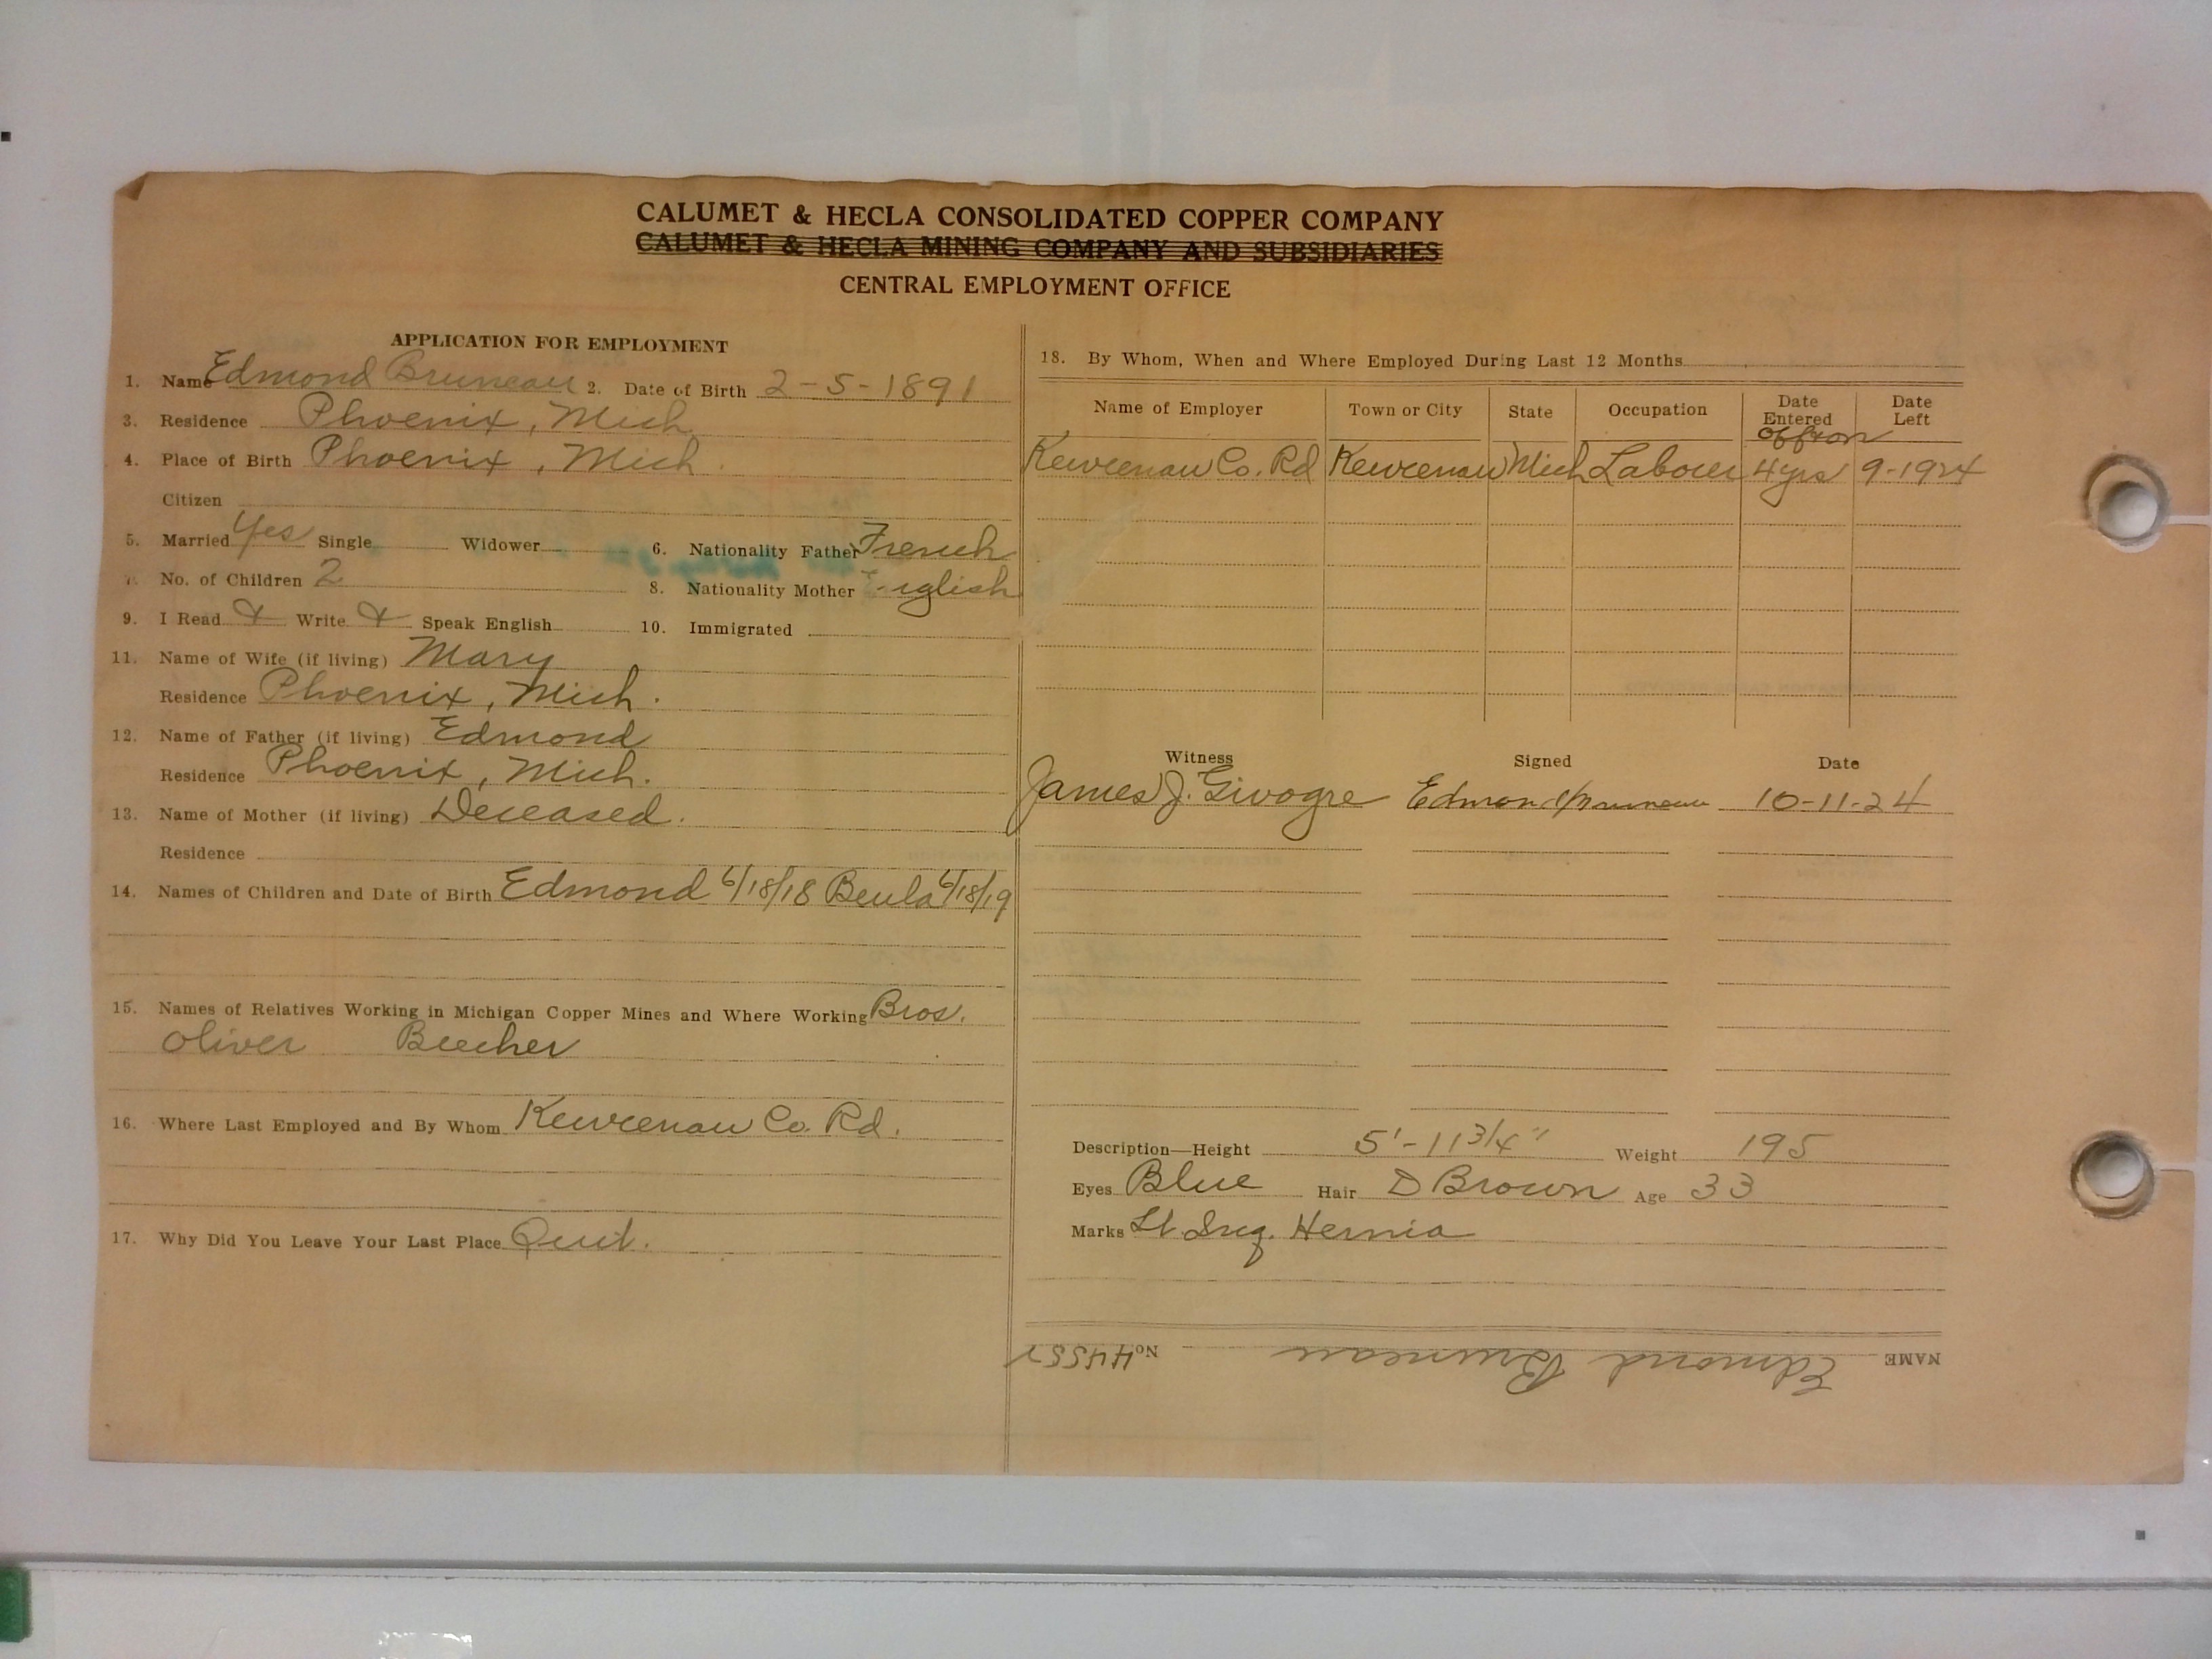 CALUMET & HECLA CONSOLIDATED COPPER COMPANY
CALUMET & HECLA MINING COMPANY AND SUBSIDIARIES
CENTRAL EMPLOYMENT OFFICE
APPLICATION FOR EMPLOYMENT
1. Name Edmond Bruneau 2. Date of Birth 2-5-1891
3. Residence Phoenix, Mich
4. Place of Birth Phoenix, Mich.
Citizen
5. Married Yes Single Widower 6. Nationality Father French
7. No. of Children 2 8. Nationality Mother English
9. I Read Write Speak English 10. Immigrated
11. Name of Wife (if living) Mary
Residence Phoenix, Mich.
12. Name of Father (if living) Edmond
Residence Phoenix, Mich.
13. Name of Mother (if living) Deceased.
Residence
14. Names of Children and Date of Birth Edmond 6/18/18 Beula 6/18/19
15. Names of Relatives Working in Michigan Copper Mines and Where Working Bros.
Oliver Beecher
16. Where Last Employed and By Whom Keweenaw Co. Rd.
17. Why Did You Leave Your Last Place Quit.
18. By Whom, When and Where Employed During Last 12 Months
Name of Employer Town or City State Occupation Date Entered Date Left
off & on
Keweenaw Co. Rd Keweenaw Mich Labour 4 yrs 9-1924
Witness Signed Date
James J. Givogre Edmond Bruneau 10-11-24
Description—Height 5'-11 3/4" Weight 195
Eyes Blue Hair D Brown Age 33
Marks Lt Ing. Hernia
NAME Edmond Bruneau No.